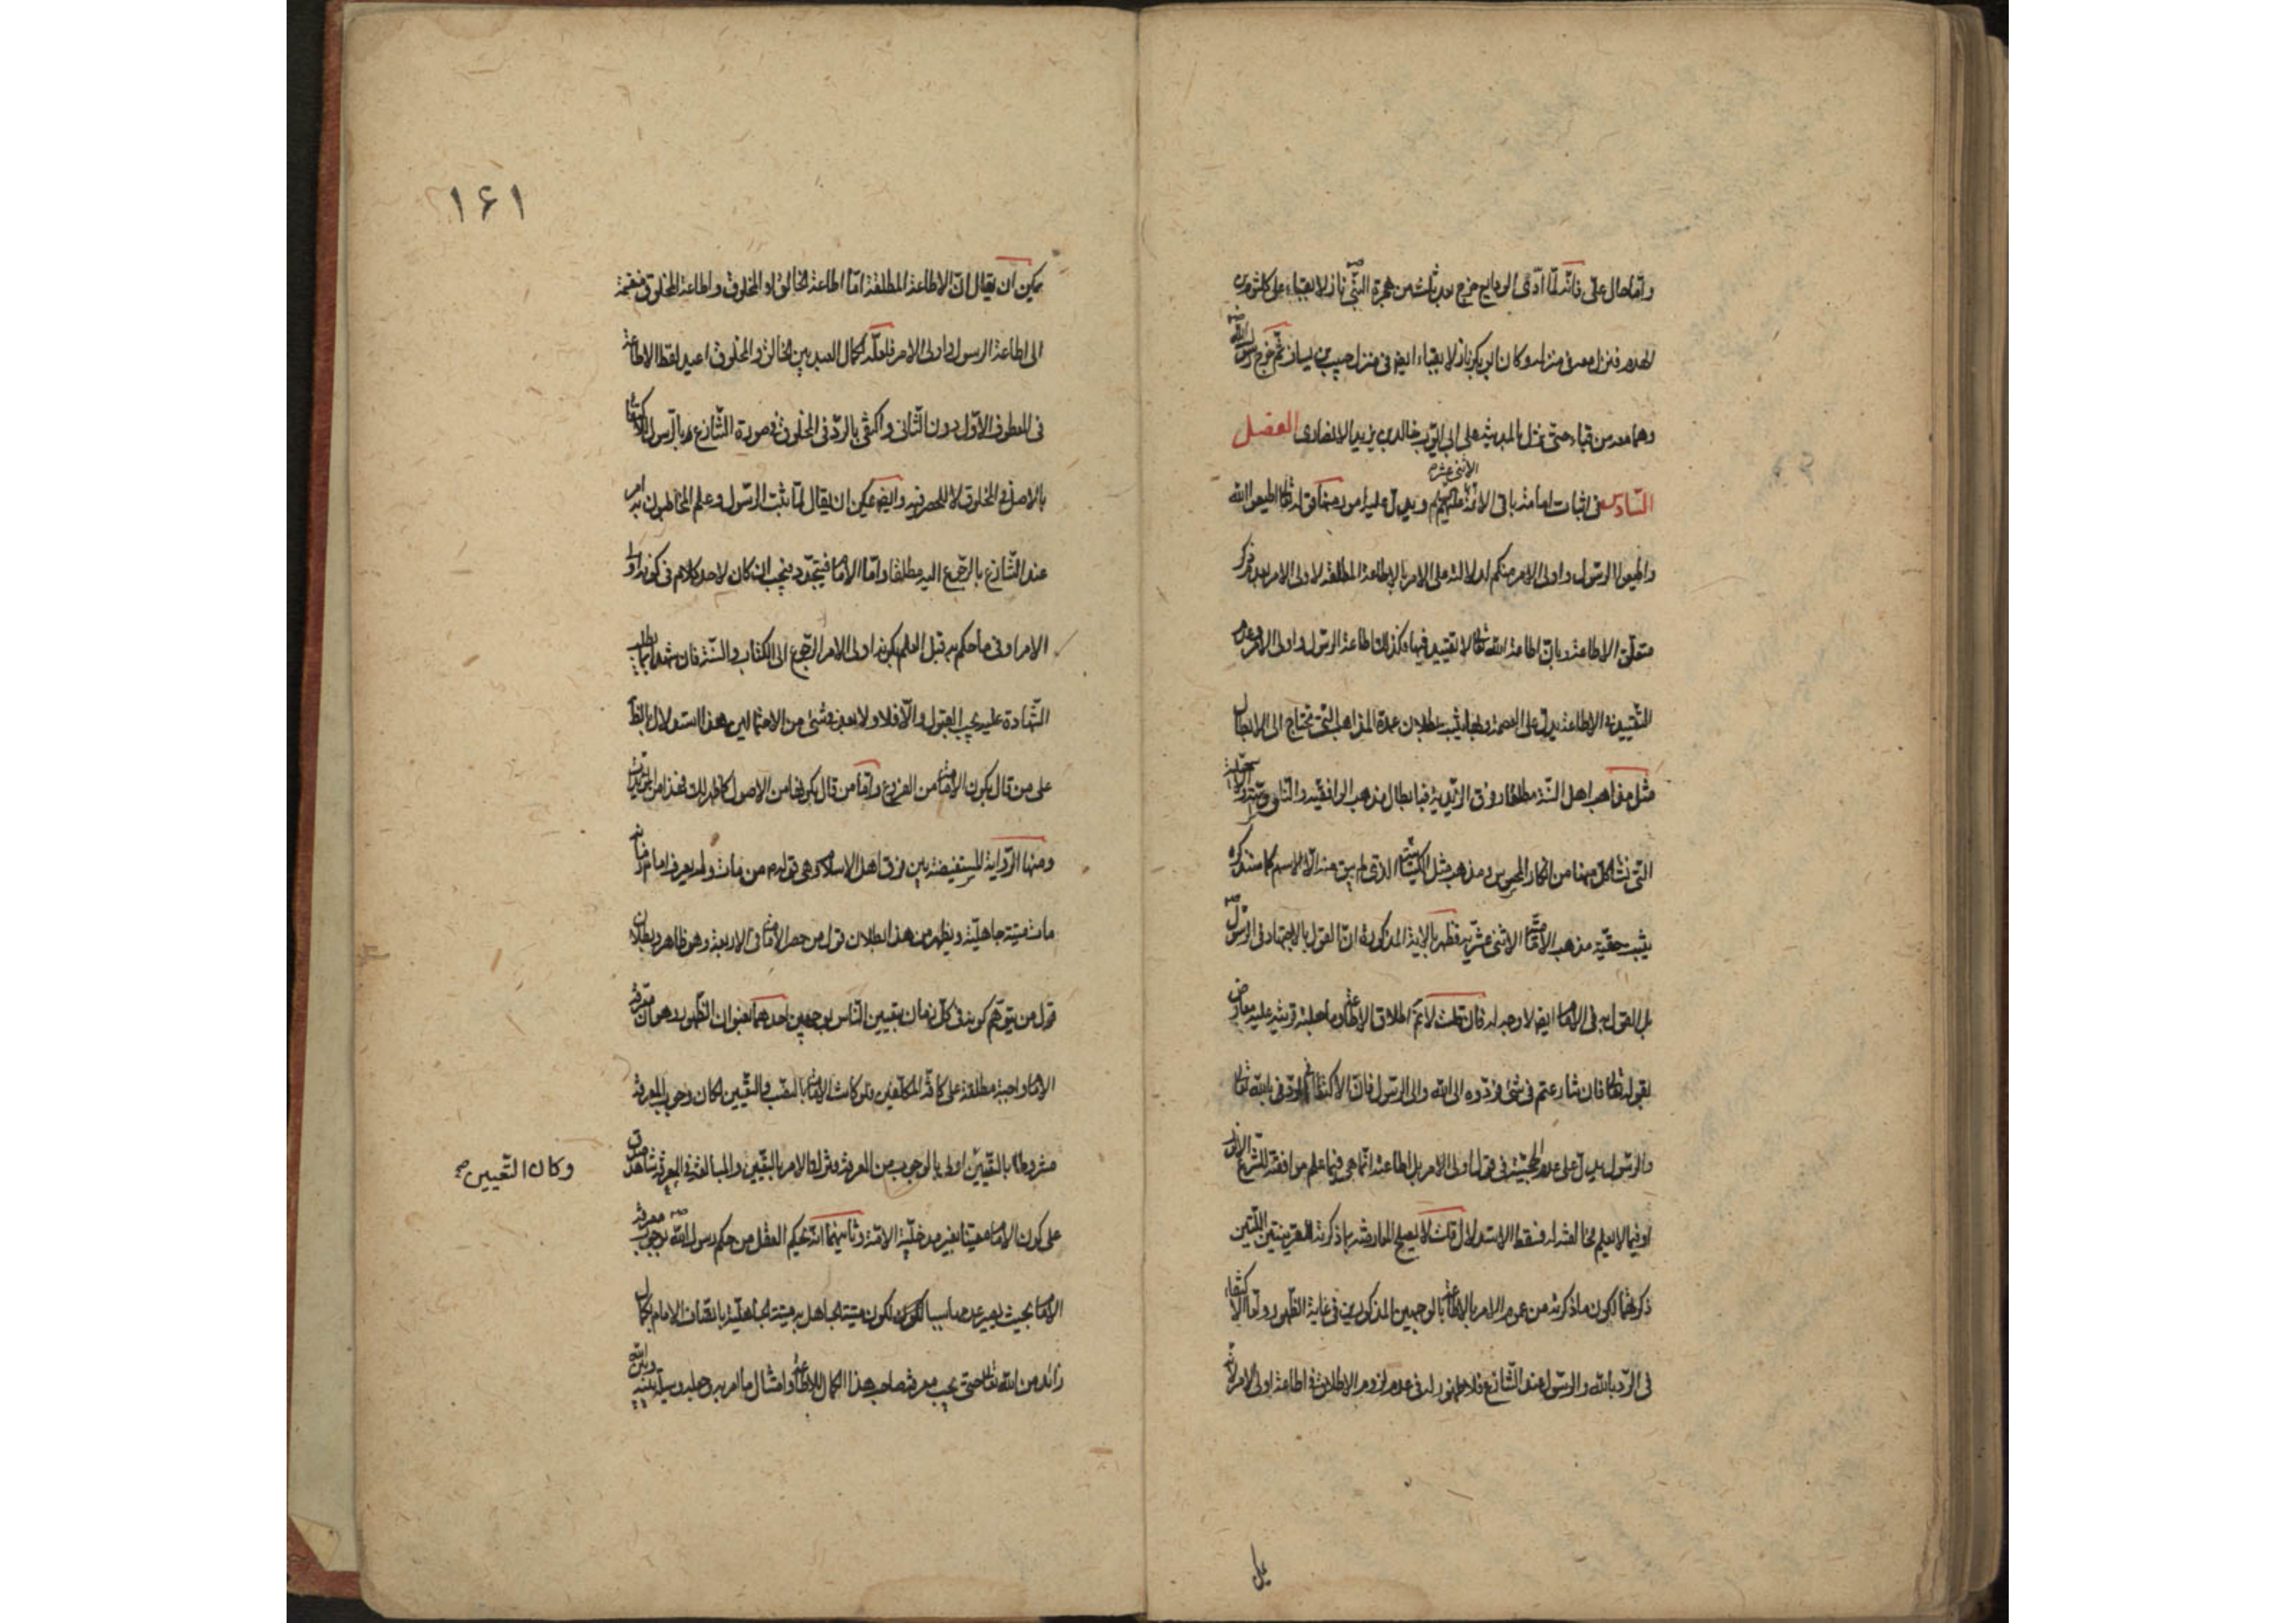 واما حال علی فانه لما ادّی الودایع خرج بعد ثلث من هجرة النبی ص نازلا بقباء علی کلثوم بن
الهدم فنزل معه فی منزله وکان ابو بکر نازلا بقباء ایضا فی منزل حبیب بن یساف ثم خرج رسول الله ص
وهما معه من قباء حتی نزل بالمدینة علی ابی ایوب خالد بن یزید الانصاری الفصل
السّادس فی اثبات امامة باقی الائمة الاثنی عشر علیهم ویدل علیه امور منها قوله تعا اطیعوا الله
واطیعوا الرّسول واولی الامر منکم لدلالته علی الامر بالاطاعة المطلقة لاولی الامر بعدم ذکر
متعلّق الاطاعة وبان اطاعة الله تعا لا تقیید فیها وکذلک اطاعة الرسول واولی الامر وعدم
التقیید فی الاطاعة یدل علی العصمة وبهذا یثبت بطلان عدة المذاهب التی تحتاج الی الابطال
مثل مذاهب اهل السّنة مطلقا وفرق الزیدیة فبابطال مذهب الواقفیة
التی مثل الکیسانیة الذی لم یبق منه الّا الاسم کما سنذکره
یثبت حقیّة مذهب الامامیّة الاثنی عشریه فظهر بالایة المذکورة انّ القول بالاجتهاد فی الرسول ص
بل القول به فی الامام ایضا لا وجه له فان قلت لا یتم اطلاق الاطاعة وما جعلته قرینة علیه معارض
بقوله تعا فان تنازعتم فی شیء فردّوه الی الله والی الرّسول فانّ الاکتفاء فی الردّ بالله تعا
والرّسول یدل علی عدم الحجیّة فی قول اولی الامر بل اطاعته انّما هی فیما علم موافقته للشّرع
او فیما لا یعلم مخالفته له فسقط الاستدلال قلت لا یصلح المعارضة بما ذکرته للقرینتین اللّتین
ذکرتهما لکون ما ذکرته من عموم الامر بالاطاعة بالوجهین المذکورین فی غایة الظهور واما الاکتفاء
فی الردّ بالله والرسول عند التّنازع فلا ظهور له فی عدم لزوم الاطلاق فی اطاعة اولی الامر لانه
یمکن
۱۶۱
یمکن ان یقال انّ الاطاعة المطلقة امّا اطاعة الخالق او المخلوق واطاعة المخلوق منقسمة
الی اطاعة الرسول واولی الامر فلعلّه لکمال البعد بین الخالق والمخلوق اعید لفظ الاطاعة
فی المعطوف الاوّل دون الثّانی واکتفی بالردّ فی المخلوق فی صورة التّنازع بالرّسول للاکتفاء
بالاصل فی المخلوق لا للحصر فیه وایضا یمکن ان یقال لمّا ثبت الرسول وعلم المخاطبون به امر
عند التّنازع بالرجوع الیه مطلقا وامّا الامام فیجب ان کان لاحد کلام فی کونه اولی
الامر او فی ما حکم به قبل العلم بکونه اولی الامر الرّجوع الی الکتاب والسّنة فان شهدا
الشّهادة علیه یجب القبول والّا فلا ولا بعد فی شیء من الاحتمالین وهذا استدلال بالظاهر
علی من قال بکون الامامة من الفروع وامّا من قال بکونها من الاصول
ومنها الرّوایة المستفیضة بین فرق اهل الاسلام وهی قوله ص من مات ولم یعرف امام زمانه
مات میتة جاهلیّة ویظهر من هذا بطلان قول من حصر الامامة فی الاربعة وهو ظاهر وبطلان
قول من یتوهّم کونه فی کل زمان بتعیین النّاس بوجهین احدهما بعنوان الظّهور وهو ان معرفة
الامام واجبة مطلقة علی کافة المکلّفین ولو کانت الامامة بالنصب والتّعیین لکان وجوب المعرفة
مشروطا بالتّعیین اولی بالوجوب من المعرفة وترک الامر بالتّعیین والمبالغة فی المعرفة شاهد صدق
وکان التّعیین صح
علی کون الامام معینا بغیر مدخلیّة الامّة وثانیهما انّه یحکم العقل من حکم رسول الله ص بوجوب معرفة
الامام بحیث یصیر عدمها سببا لکون میتة الجاهل به میتة الجاهلیّة باتّصاف الامام بکمال
زائد من الله تعا حتی یجب معرفة صاحب هذا الکمال للاطاعة وامتثال ما امر به وجعله وسیلة بینه وبین الله